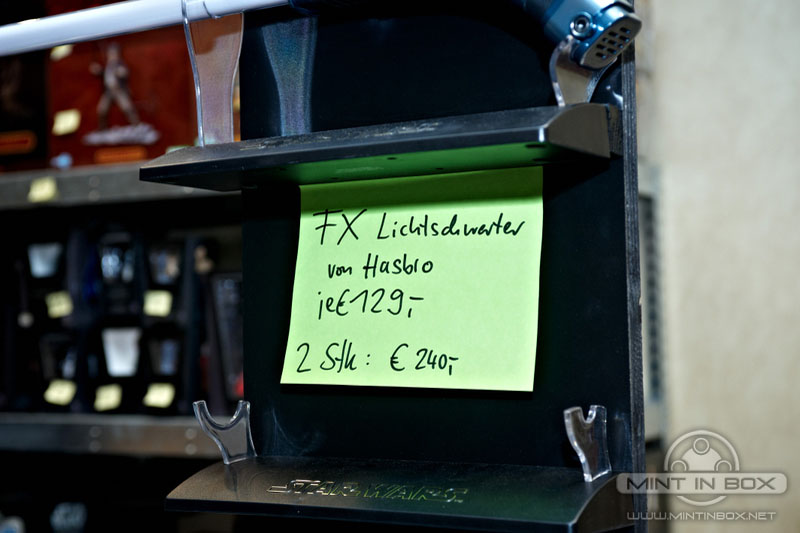 FX Lichtschwerter
von Hasbro
je € 129,-
2 Stk: € 240,-
STAR WARS
MINT IN BOX
WWW.MINTINBOX.NET